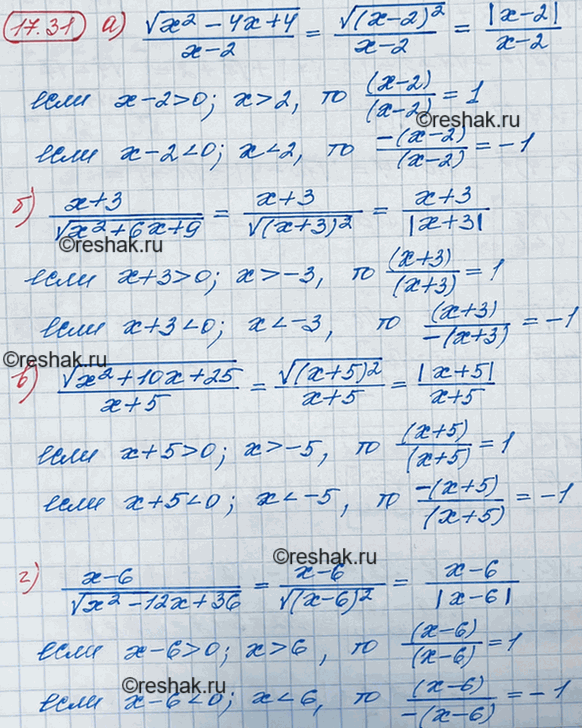 17.31 а) √(x²-4x+4)/(x-2) = √((x-2)²)/(x-2) = |x-2|/(x-2)
если x-2>0; x>2, то (x-2)/(x-2) = 1
©reshak.ru
если x-2<0; x<2, то -(x-2)/(x-2) = -1
б) (x+3)/√(x²+6x+9) = (x+3)/√((x+3)²) = (x+3)/|x+3|
©reshak.ru
если x+3>0; x>-3, то (x+3)/(x+3) = 1
если x+3<0; x<-3, то (x+3)/-(x+3) = -1
©reshak.ru
в) √(x²+10x+25)/(x+5) = √((x+5)²)/(x+5) = |x+5|/(x+5)
если x+5>0; x>-5, то (x+5)/(x+5) = 1
©reshak.ru
если x+5<0; x<-5, то -(x+5)/(x+5) = -1
©reshak.ru
г) (x-6)/√(x²-12x+36) = (x-6)/√((x-6)²) = (x-6)/|x-6|
если x-6>0; x>6, то (x-6)/(x-6) = 1
©reshak.ru
©reshak.ru
если x-6<0; x<6, то (x-6)/-(x-6) = -1